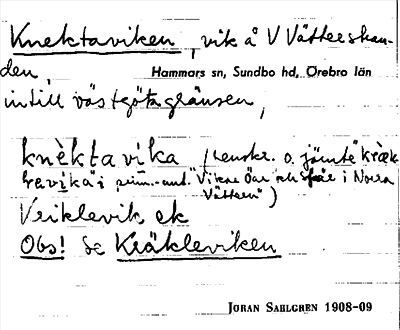 Knektaviken, vik å V Vätterskan-
den, Hammars sn, Sundbo hd, Örebro län
intill västgötagränsen,
knèktavika (censkr. o. jämte "kræk
levika" i prim.-ant. "Vikar Öar och Skär i Norra
Vättern")
Veiklevik ek
Obs! Se Kräkleviken
JÖRAN SAHLGREN 1908-09